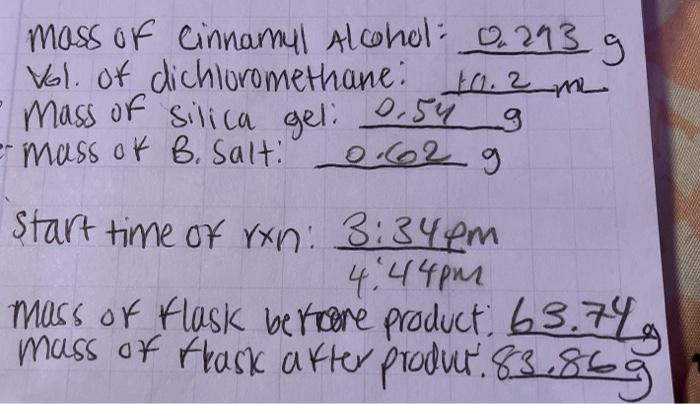 Mass of Cinnamyl Alcohol: 0.293 g
Vol. of dichloromethane: 10.2 m
Mass of Silica gel: 0.54 g
mass of B. Salt: 0.62 g
Start time of rxn: 3:34pm
4:44pm
mass of flask before product: 63.74g
mass of flask after product. 83.86g